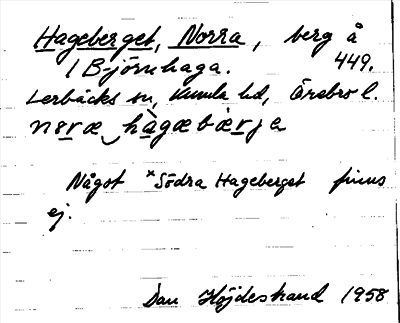 Hageberget, Norra, berg å
1 Björnhaga. 449.
Lerbäcks sn, Kumla hd, Örebro l.
nɷræ hàgæbærja
Något *Södra Hageberget finns
ej.
Dan Höjdestrand 1958